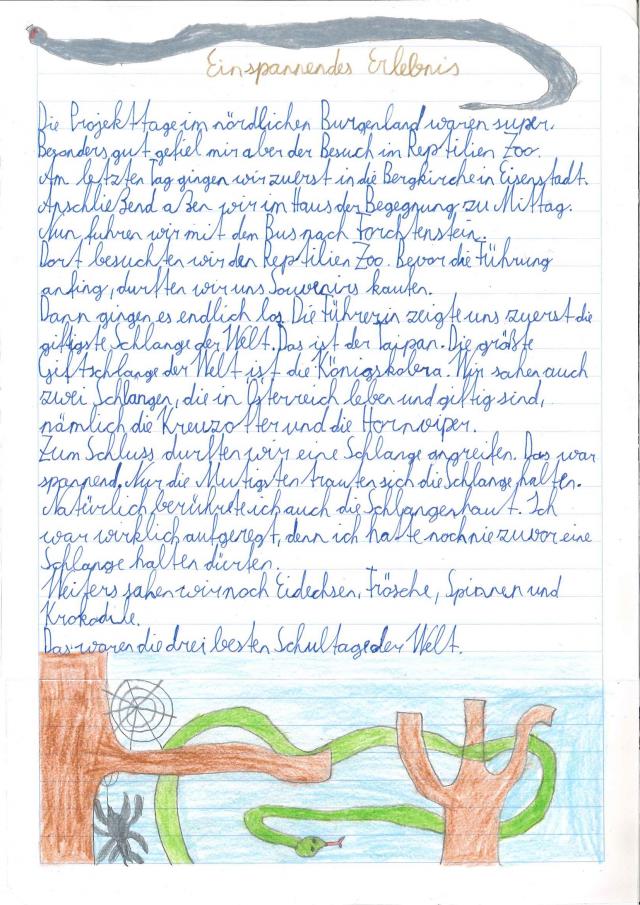 Ein spannendes Erlebnis
Die Projekttage im nördlichen Burgenland waren super.
Besonders gut gefiel mir aber der Besuch im Reptilien Zoo.
Am letzten Tag gingen wir zuerst in die Bergkirche in Eisenstadt.
Anschließend aßen wir im Haus der Begegnung zu Mittag.
Nun fuhren wir mit dem Bus nach Forchtenstein.
Dort besuchten wir den Reptilien Zoo. Bevor die Führung
anfing, durften wir uns Souvenirs kaufen.
Dann gingen es endlich los. Die Führerin zeigte uns zuerst die
giftigste Schlange der Welt. Das ist der Taipan. Die größte
Giftschlange der Welt ist die Königskobra. Wir sahen auch
zwei Schlangen, die in Österreich leben und giftig sind,
nämlich die Kreuzotter und die Hornviper.
Zum Schluss durften wir eine Schlange angreifen. Das war
spannend. Nur die Mutigsten trauten sich die Schlange halten.
Natürlich berührte ich auch die Schlangenhaut. Ich
war wirklich aufgeregt, denn ich hatte noch nie zuvor eine
Schlange halten dürfen.
Weiters sahen wir noch Eidechsen, Frösche, Spinnen und
Krokodile.
Das waren die drei besten Schultage der Welt.